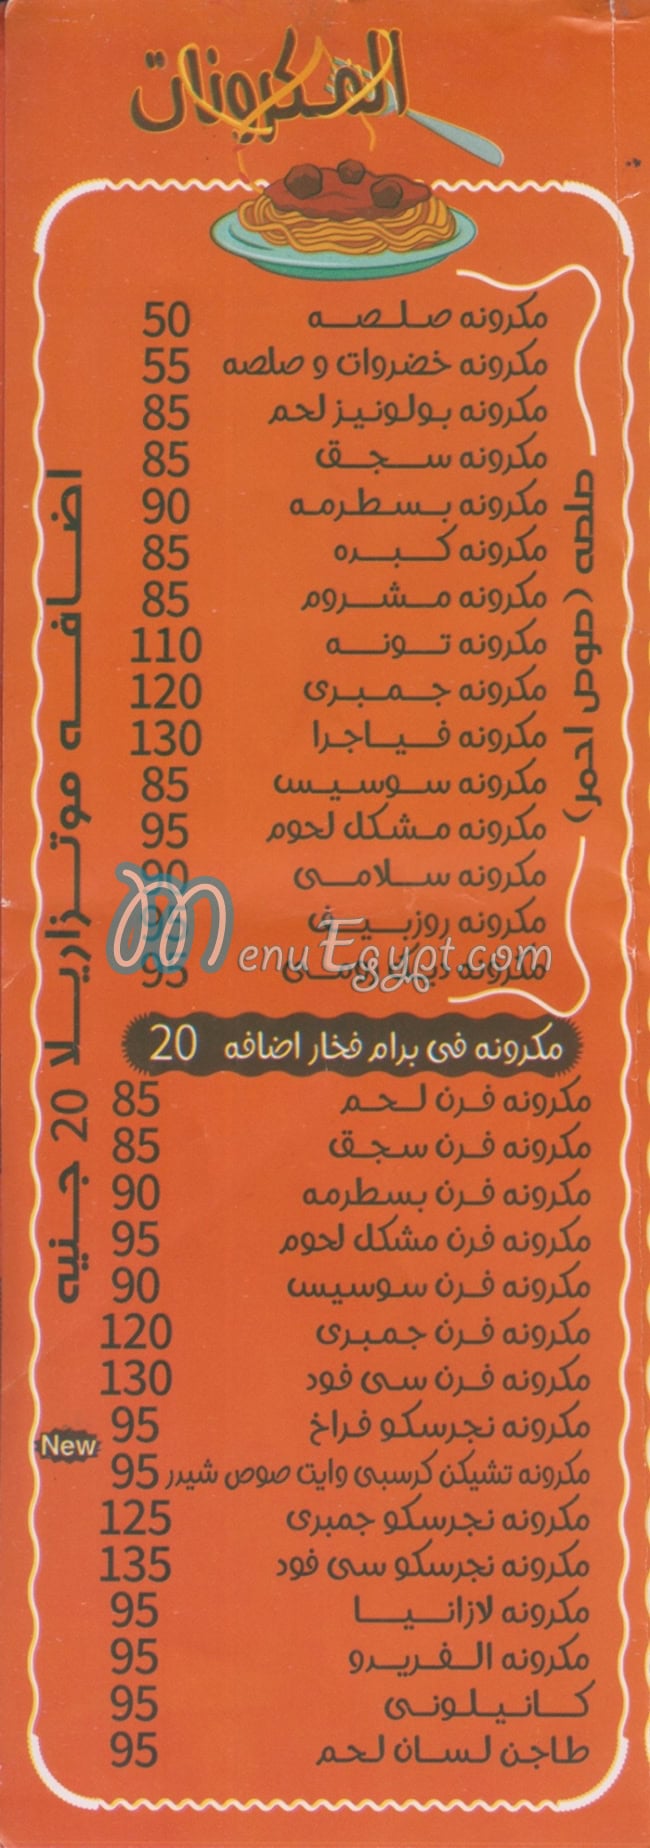 المكرونات
مكرونه صلصه 50
مكرونه خضروات و صلصه 55
مكرونه بولونيز لحم 85
مكرونه سجق 85
مكرونه بسطرمه 90
مكرونه كبده 85
مكرونه مشروم 85
مكرونه تونه 110
مكرونه جمبرى 120
مكرونه فياجرا 130
مكرونه سوسيس 85
مكرونه مشكل لحوم 95
مكرونه سلامى 90
مكرونه روزبيف 95
مكرونه رومى 95
صلصه (صوص احمر)
MenuEgypt.com
مكرونه فى برام فخار اضافه 20
مكرونه فرن لحم 85
مكرونه فرن سجق 85
مكرونه فرن بسطرمه 90
مكرونه فرن مشكل لحوم 95
مكرونه فرن سوسيس 90
مكرونه فرن جمبرى 120
مكرونه فرن سى فود 130
مكرونه نجرسكو فراخ 95
مكرونه تشيكن كرسبى وايت صوص شيدر 95
New
مكرونه نجرسكو جمبرى 125
مكرونه نجرسكو سى فود 135
مكرونه لازانيا 95
مكرونه الفريدو 95
كانيلونى 95
طاجن لسان لحم 95
اضافه موتزاريلا 20 جنيه